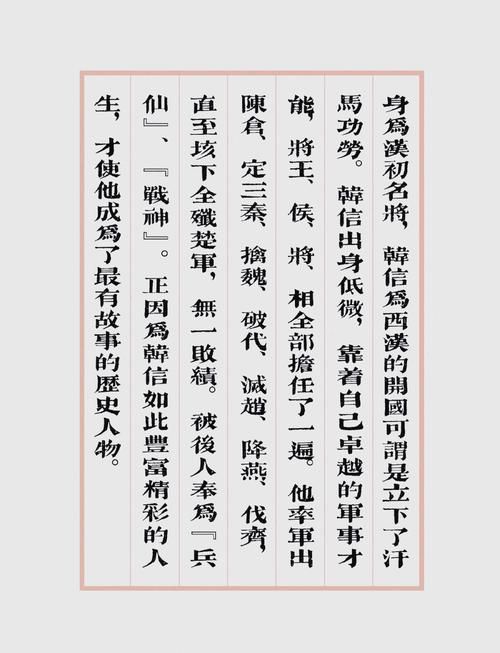 身爲漢初名將，韓信爲西漢的開國可謂是立下了汗
馬功勞。韓信出身低微，靠着自己卓越的軍事才
能，將王、侯、將、相全部擔任了一遍。他率軍出
陳倉、定三秦、擒魏、破代、滅趙、降燕、伐齊，
直至垓下全殲楚軍，無一敗績。被後人奉爲『兵
仙』、『戰神』。正因爲韓信如此豐富精彩的人
生，才使他成爲了最有故事的歷史人物。